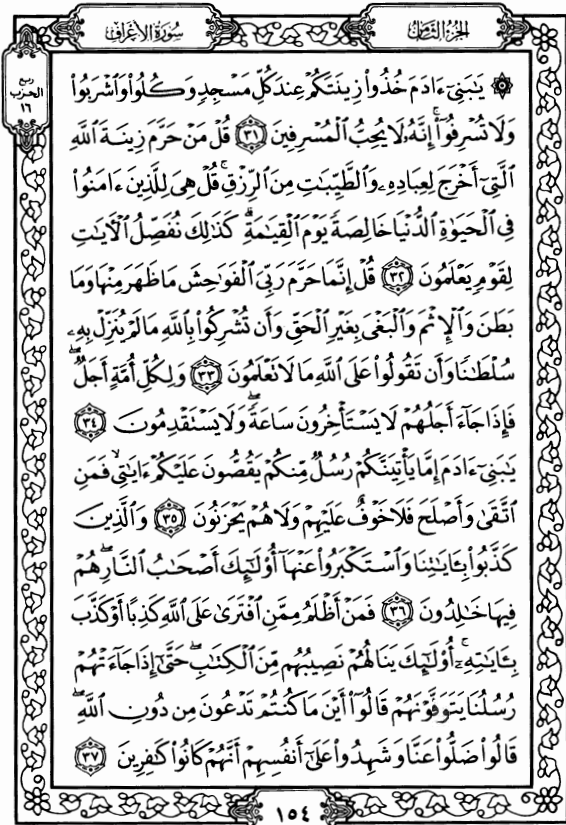 سُورَةُ الأَعْرَافِ
الجُزْءُ الثَّامِنُ
ربع
الحزب
١٦
۞ يَـٰبَنِىٓ ءَادَمَ خُذُواْ زِينَتَكُمْ عِندَ كُلِّ مَسْجِدٍ وَكُلُواْ وَٱشْرَبُواْ
وَلَا تُسْرِفُوٓاْ ۚ إِنَّهُۥ لَا يُحِبُّ ٱلْمُسْرِفِينَ ﴿٣١﴾ قُلْ مَنْ حَرَّمَ زِينَةَ ٱللَّهِ
ٱلَّتِىٓ أَخْرَجَ لِعِبَادِهِۦ وَٱلطَّيِّبَـٰتِ مِنَ ٱلرِّزْقِ ۚ قُلْ هِىَ لِلَّذِينَ ءَامَنُواْ
فِى ٱلْحَيَوٰةِ ٱلدُّنْيَا خَالِصَةً يَوْمَ ٱلْقِيَـٰمَةِ ۗ كَذَٰلِكَ نُفَصِّلُ ٱلْـَٔايَـٰتِ
لِقَوْمٍ يَعْلَمُونَ ﴿٣٢﴾ قُلْ إِنَّمَا حَرَّمَ رَبِّىَ ٱلْفَوَٰحِشَ مَا ظَهَرَ مِنْهَا وَمَا
بَطَنَ وَٱلْإِثْمَ وَٱلْبَغْىَ بِغَيْرِ ٱلْحَقِّ وَأَن تُشْرِكُواْ بِٱللَّهِ مَا لَمْ يُنَزِّلْ بِهِۦ
سُلْطَـٰنًا وَأَن تَقُولُواْ عَلَى ٱللَّهِ مَا لَا تَعْلَمُونَ ﴿٣٣﴾ وَلِكُلِّ أُمَّةٍ أَجَلٌ ۖ
فَإِذَا جَآءَ أَجَلُهُمْ لَا يَسْتَأْخِرُونَ سَاعَةً ۖ وَلَا يَسْتَقْدِمُونَ ﴿٣٤﴾
يَـٰبَنِىٓ ءَادَمَ إِمَّا يَأْتِيَنَّكُمْ رُسُلٌ مِّنكُمْ يَقُصُّونَ عَلَيْكُمْ ءَايَـٰتِى ۙ فَمَنِ
ٱتَّقَىٰ وَأَصْلَحَ فَلَا خَوْفٌ عَلَيْهِمْ وَلَا هُمْ يَحْزَنُونَ ﴿٣٥﴾ وَٱلَّذِينَ
كَذَّبُواْ بِـَٔايَـٰتِنَا وَٱسْتَكْبَرُواْ عَنْهَآ أُوْلَـٰٓئِكَ أَصْحَـٰبُ ٱلنَّارِ ۖ هُمْ
فِيهَا خَـٰلِدُونَ ﴿٣٦﴾ فَمَنْ أَظْلَمُ مِمَّنِ ٱفْتَرَىٰ عَلَى ٱللَّهِ كَذِبًا أَوْ كَذَّبَ
بِـَٔايَـٰتِهِۦٓ ۚ أُوْلَـٰٓئِكَ يَنَالُهُمْ نَصِيبُهُم مِّنَ ٱلْكِتَـٰبِ ۖ حَتَّىٰٓ إِذَا جَآءَتْهُمْ
رُسُلُنَا يَتَوَفَّوْنَهُمْ قَالُوٓاْ أَيْنَ مَا كُنتُمْ تَدْعُونَ مِن دُونِ ٱللَّهِ ۖ
قَالُواْ ضَلُّواْ عَنَّا وَشَهِدُواْ عَلَىٰٓ أَنفُسِهِمْ أَنَّهُمْ كَانُواْ كَـٰفِرِينَ ﴿٣٧﴾
١٥٤